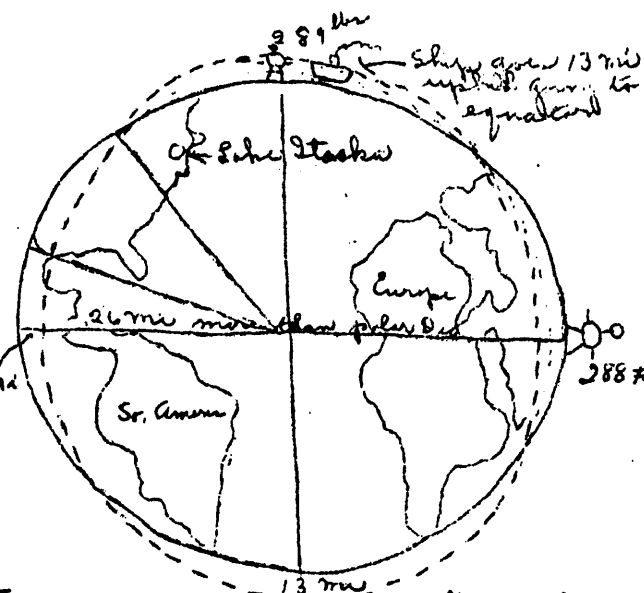 289 lbs
Ship goes 13 mi
uphill going to
equator
Lake Itaska
Europe
26 mi more than polar Dia
288#
So. Ameri
13 mi